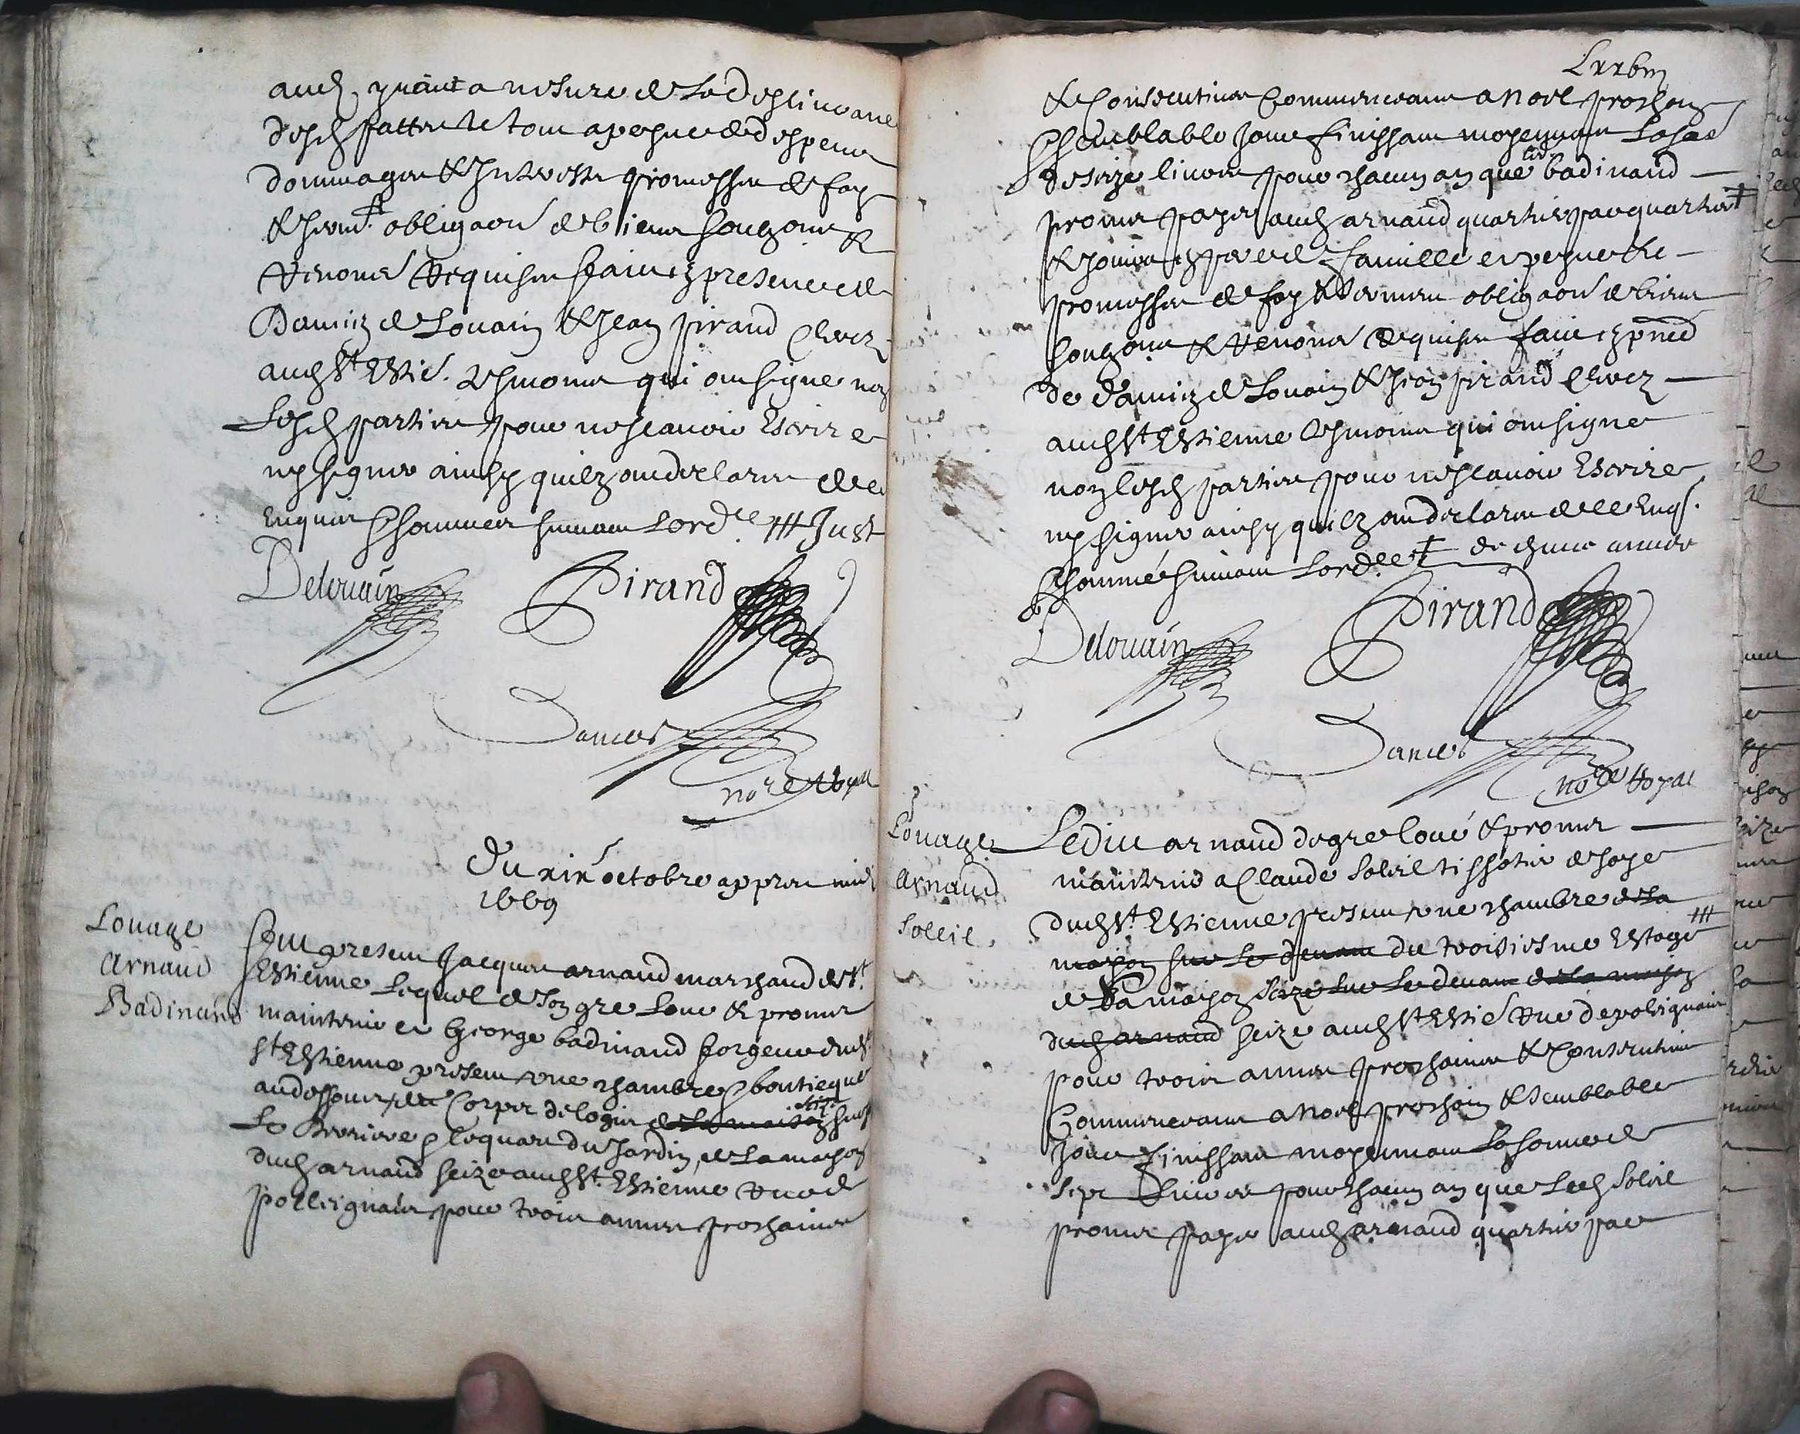 aud. quant a mesure de la deslivrance
desd pattes le tout a pesne de despens
dommages & Interestz promesses de foy
& serm.t obligaon de biens soubzmis &
renonc requises faict en presence de
Damien de Louain & Jean pirand clercz
aud St Estie. tesmoins qui ont signe non
lesd parties pour ne scavoir Escrire
ny signer ainsy quilz ont declare de ce
Enquis & sommes suivant lord.ce ### Just
Delouain Pirand
Dances
no.re Royal
Du xix.e octobre appres midi
1669
Louage
Arnaud
Badinand
Feut present Jacques arnaud marchand de St
Estienne lequel de son gre loue & promet
maintenir a George badinand forgeur dud
St Estienne present une chambre & boutieque
au dessoubz, du Corps de logis de la maison sus
Le Derriere & le quart du Jardin, de la maison
dud arnaud seize aud St Estienne rue de
polleignais pour trois annees prochaines
Lxxviii
& Consecutives Commenceant a Noel prochain
& semblable Jour finissant moyennant la so.e
de seize livres pour chacun an que led badinand
promet payer aud arnaud quartier par quartier †
& jouir en pere de famille a pesne &c
promesses de foy & serment obligaon de biens
soubzmis & renonc requises faict en pnce
de damien de Louain & Jean pirand clercz
aud St Estienne tesmoins qui ont signe
non lesd parties pour ne scavoir Escrire
ny signer ainsy quilz ont declare de ce Enq.s
& sommé suivant lord.ce † de chacune annee
Delouain Pirand
Dances
no.re Royal
Louage
Arnaud
Soleil
Ledict arnaud de gre loué & promet
maintenir a Claude Soleil tissotier de soye
dud St Estienne present une chambre de la
maison sur le devant du troisiesme Estage ###
de la maison seize sur le devant de la maison
dud arnaud seize aud St Estie rue de poleignais
pour trois annees prochaines & Consecutives
Commenceant a Noel prochain & semblable
Jour finissant moyennant la somme de
sept livres pour chacun an que led Soleil
promet payer aud arnaud quartier par